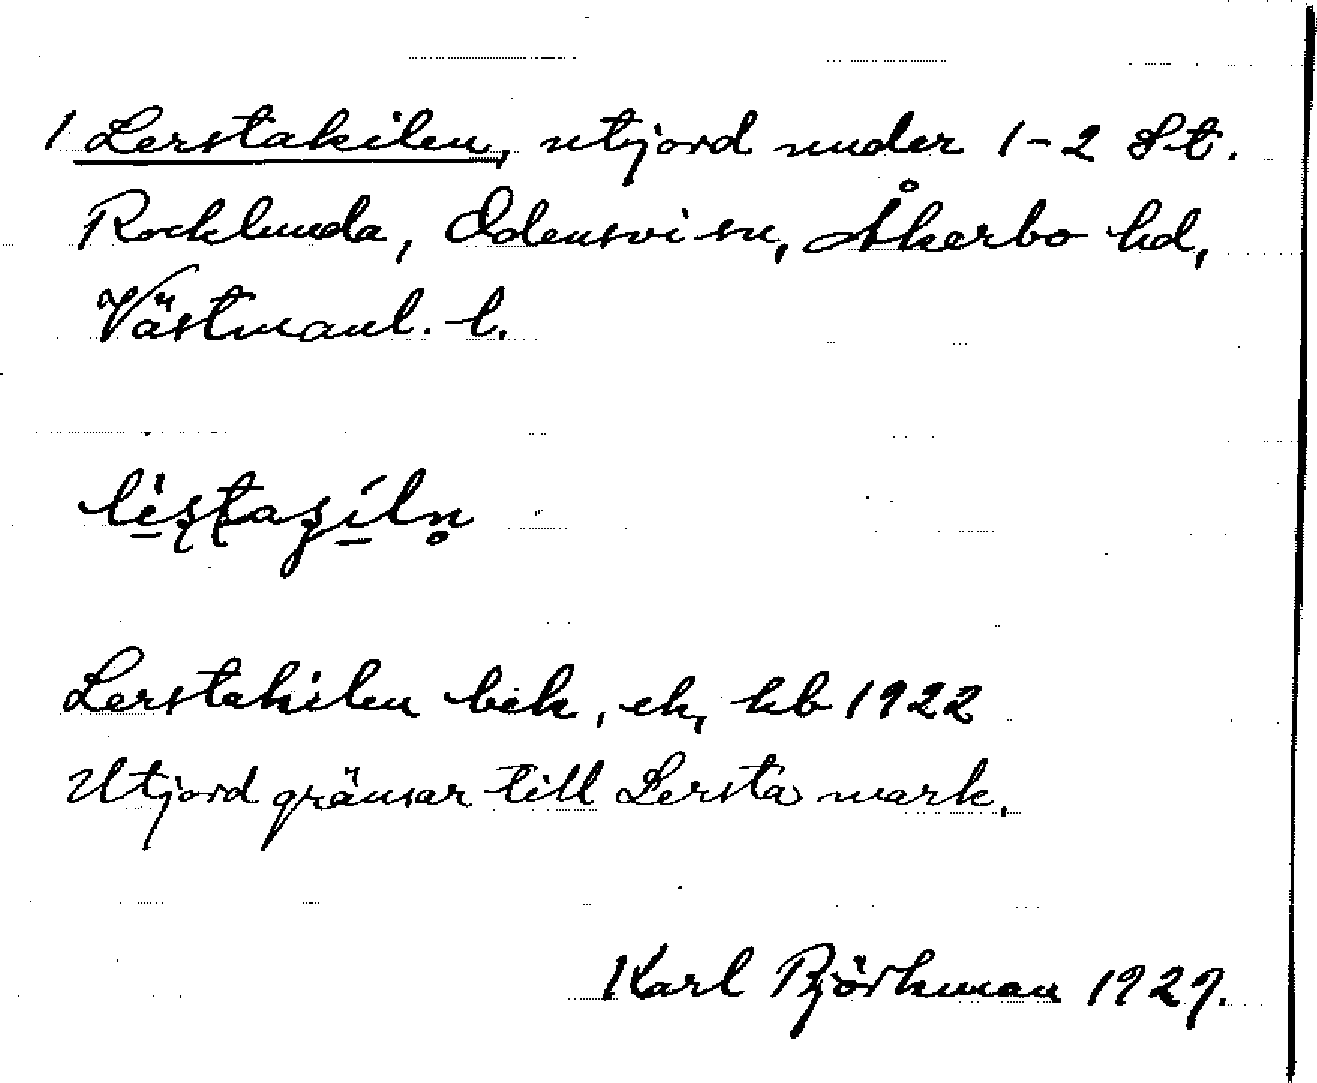 1 Lerstakilen, utjord under 1-2 St.
Rocklunda, Odensvi sn, Åkerbo hd,
Västmanl. l.
Lerstakilen bik, ek, kb 1922
Utjord gränsar till Lersta mark.
Karl Björkman 1929.